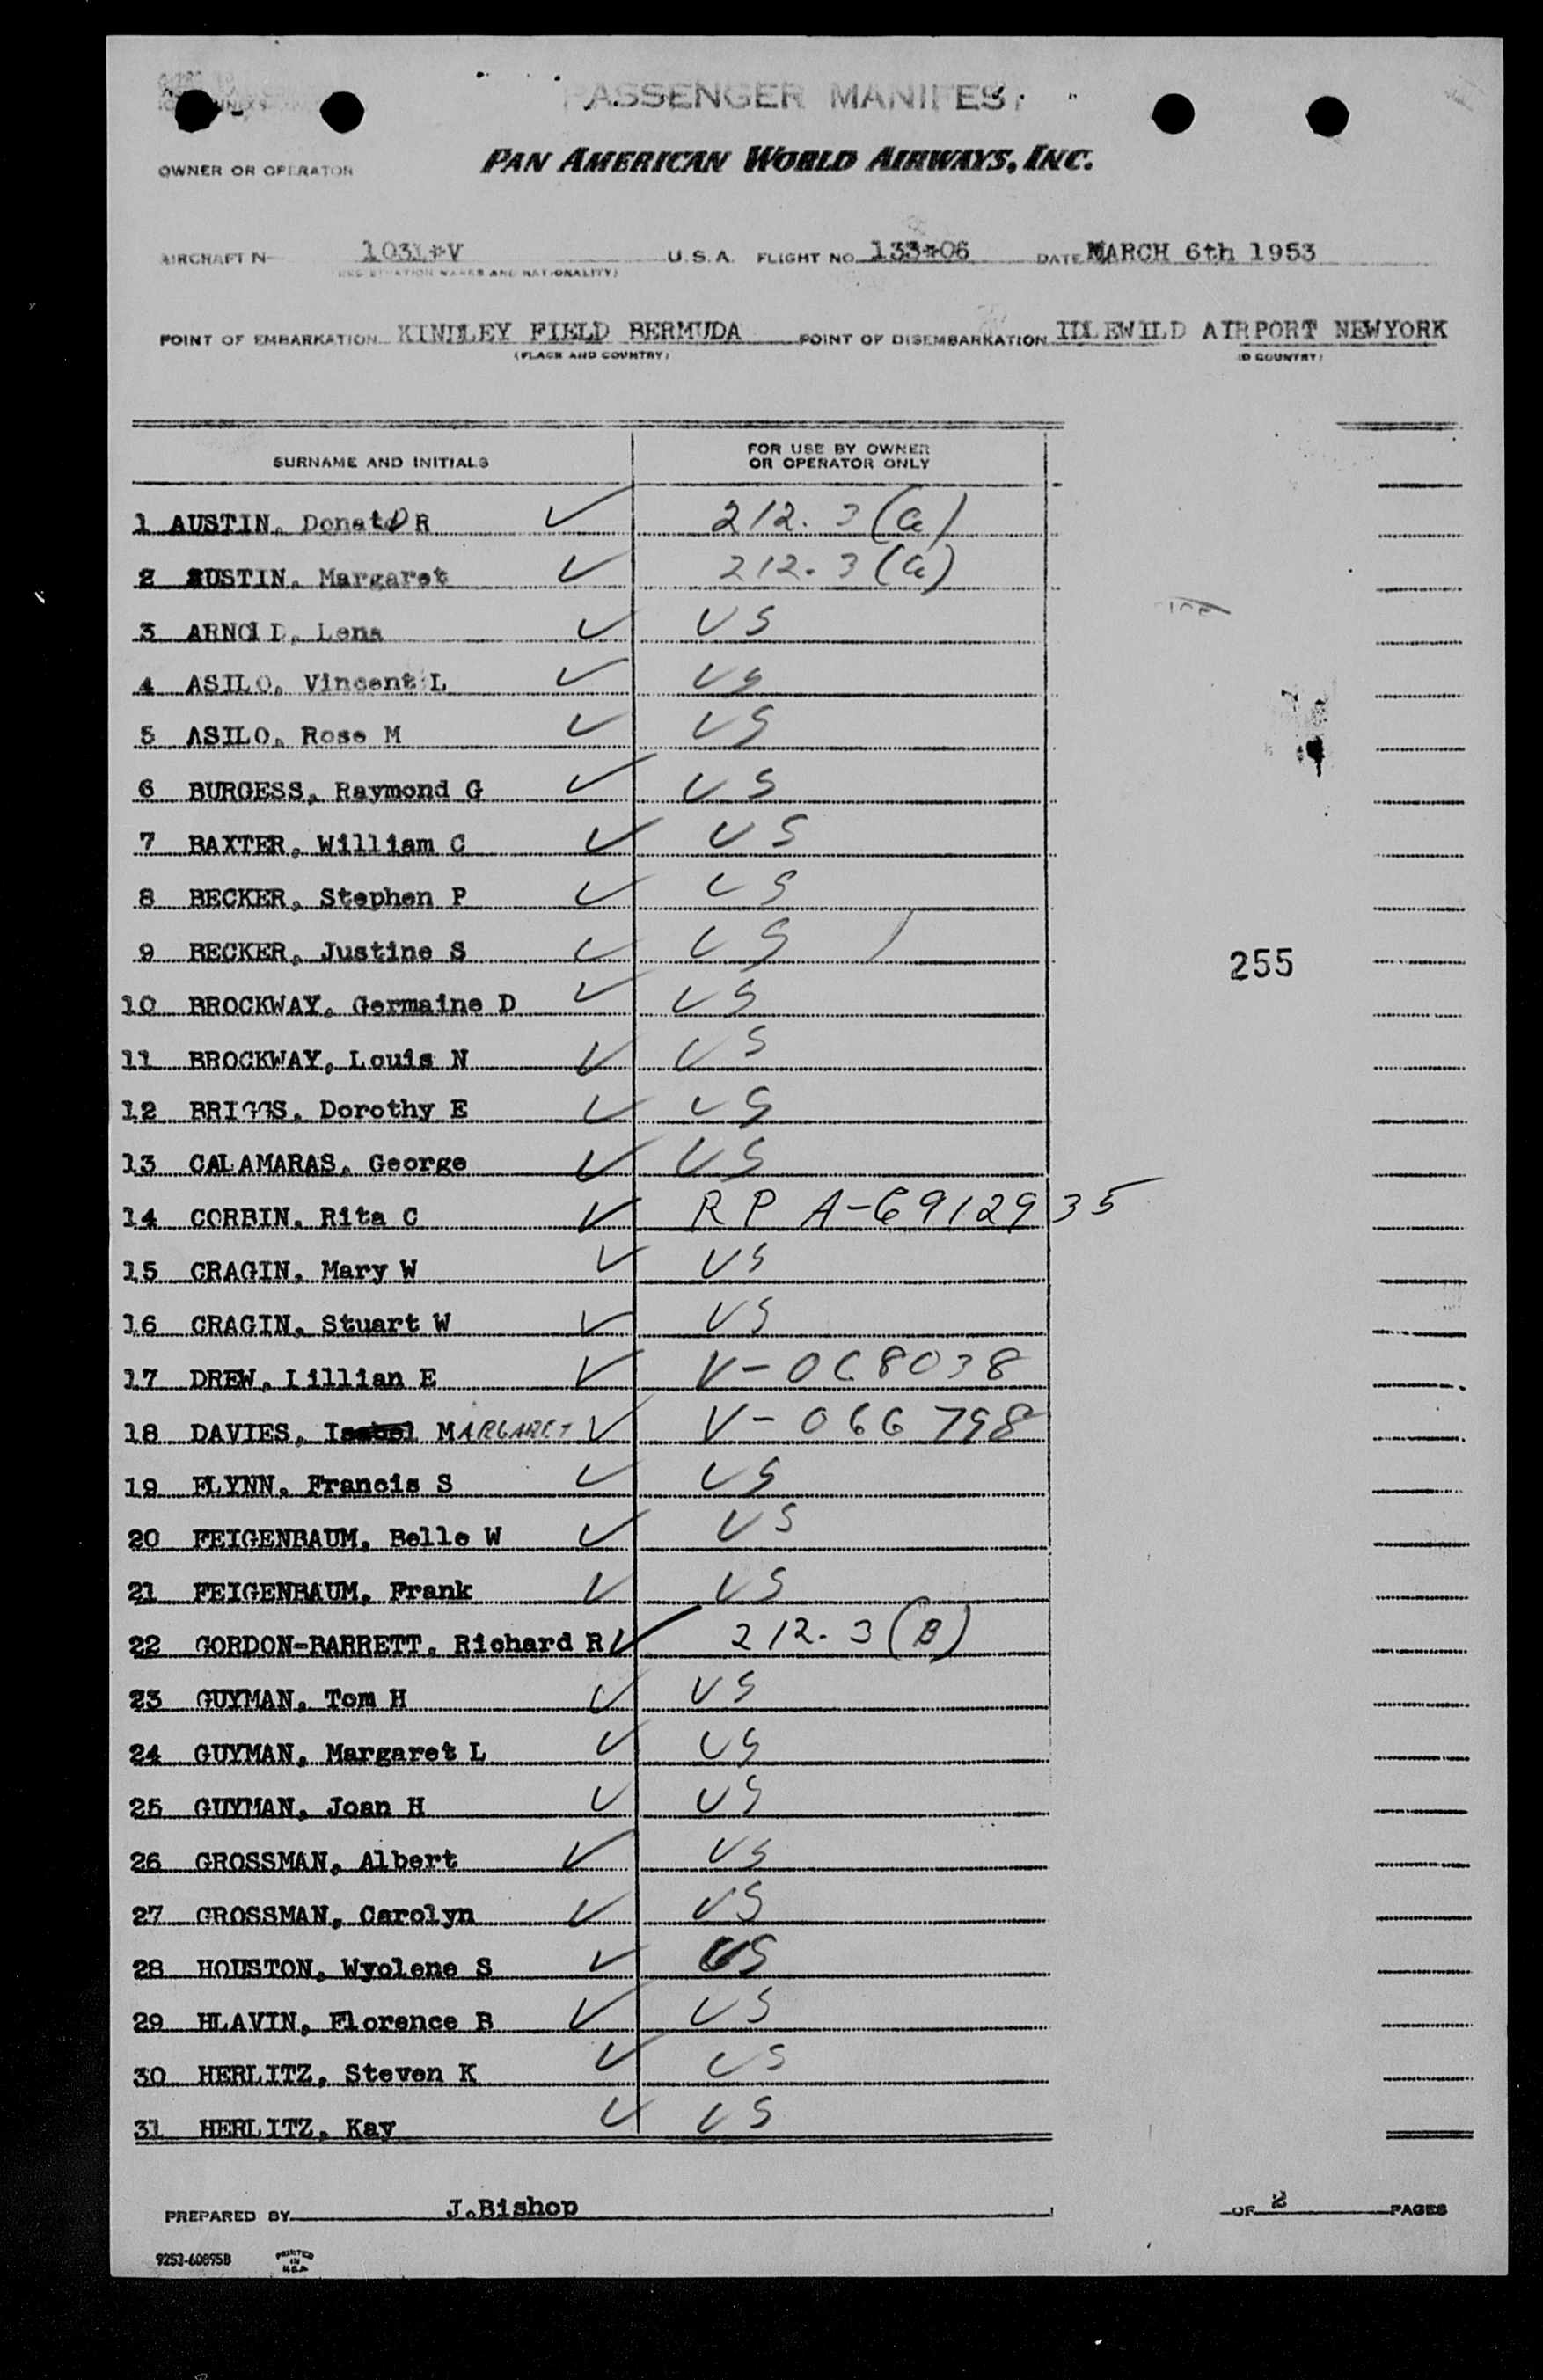 PASSENGER MANIFEST
OWNER OR OPERATOR PAN AMERICAN WORLD AIRWAYS, INC.
AIRCRAFT N 1031*V U.S.A. FLIGHT NO. 133*06 DATE MARCH 6th 1953
POINT OF EMBARKATION KINDLEY FIELD BERMUDA POINT OF DISEMBARKATION IDLEWILD AIRPORT NEWYORK
(PLACE AND COUNTRY) D COUNTRY)
SURNAME AND INITIALS FOR USE BY OWNER OR OPERATOR ONLY
1 AUSTIN, Donald R 212.3(a)
2 AUSTIN, Margaret 212.3(a)
3 ARNOLD, Lena US
4 ASILO, Vincent L US
5 ASILO, Rose M US
6 BURGESS, Raymond G US
7 BAXTER, William C US
8 BECKER, Stephen P US
9 BECKER, Justine S US
255
10 BROCKWAY, Germaine D US
11 BROCKWAY, Louis N US
12 BRIGGS, Dorothy E US
13 CALAMARAS, George US
14 CORBIN, Rita C RP A-6912935
15 CRAGIN, Mary W US
16 CRAGIN, Stuart W US
17 DREW, Lillian E V-068038
18 DAVIES, Isabel MARGARET V-066798
19 FLYNN, Francis S US
20 FEIGENBAUM, Belle W US
21 FEIGENBAUM, Frank US
22 GORDON-BARRETT, Richard R 212.3(B)
23 GUYMAN, Tom H US
24 GUYMAN, Margaret L US
25 GUYMAN, Joan H US
26 GROSSMAN, Albert US
27 GROSSMAN, Carolyn US
28 HOUSTON, Wyolene S US
29 HLAVIN, Florence B US
30 HERLITZ, Steven K US
31 HERLITZ, Kay US
PREPARED BY J.Bishop OF 2 PAGES
9253-60895B PRINTED IN U.S.A.